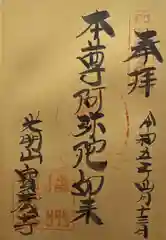 奉拝
令和五年四月十三日
本尊阿弥陀如来
光明山
寺